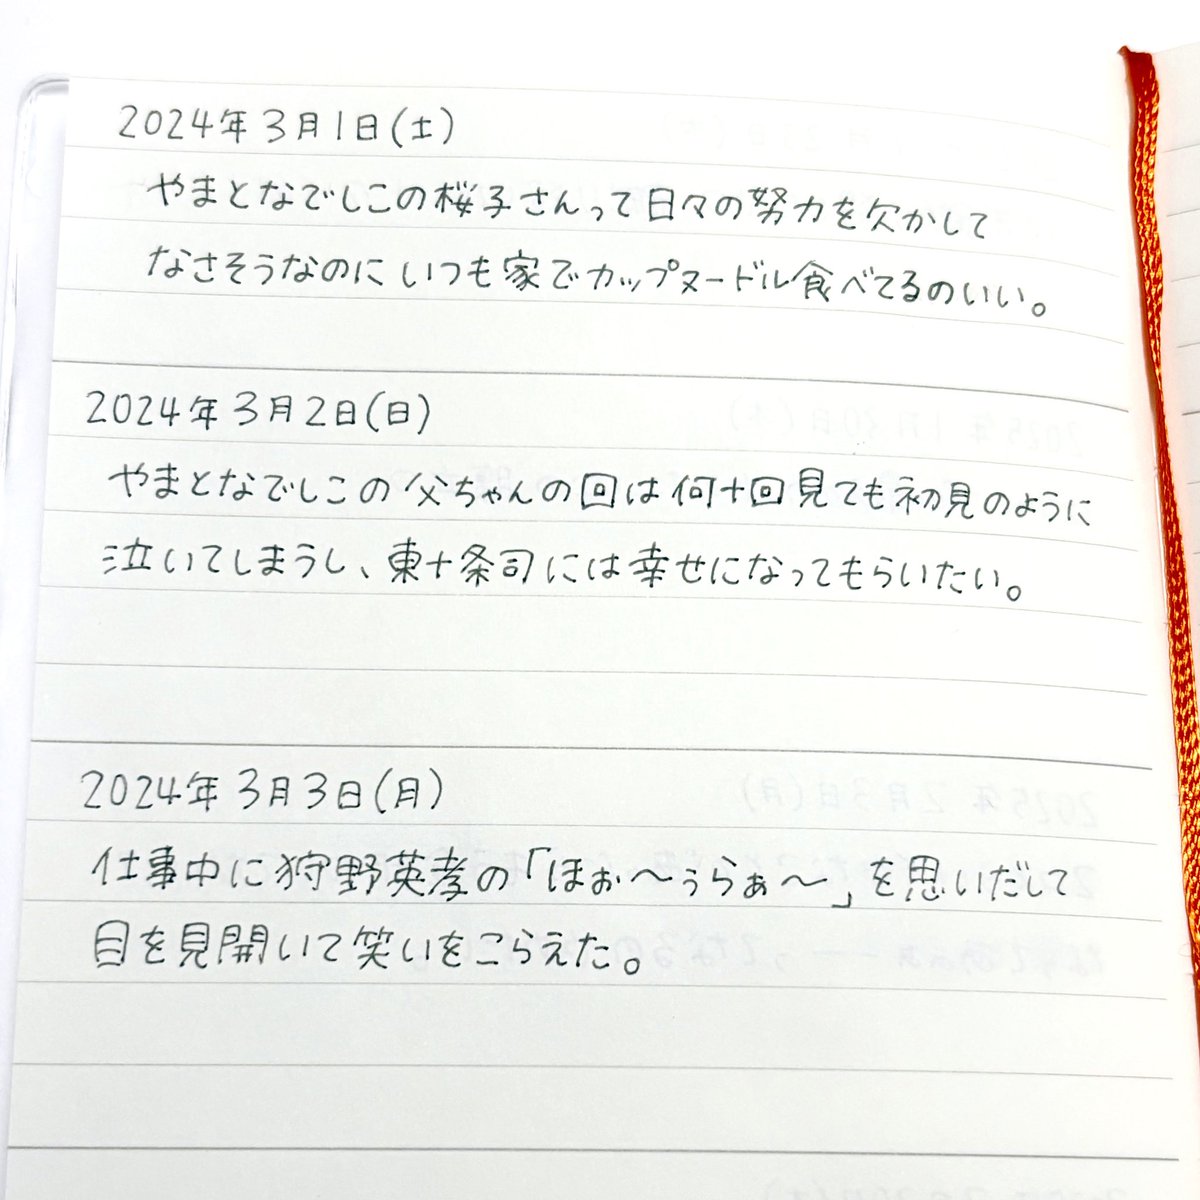 2024年3月1日(土)
やまとなでしこの桜子さんって日々の努力を欠かして
なさそうなのにいつも家でカップヌードル食べてるのいい。
2024年3月2日(日)
やまとなでしこの父ちゃんの回は何十回見ても初見のように
泣いてしまうし、東十条司には幸せになってもらいたい。
2024年3月3日(月)
仕事中に狩野英孝の「ほぉ〜ぅらぁ〜」を思いだして
目を見開いて笑いをこらえた。